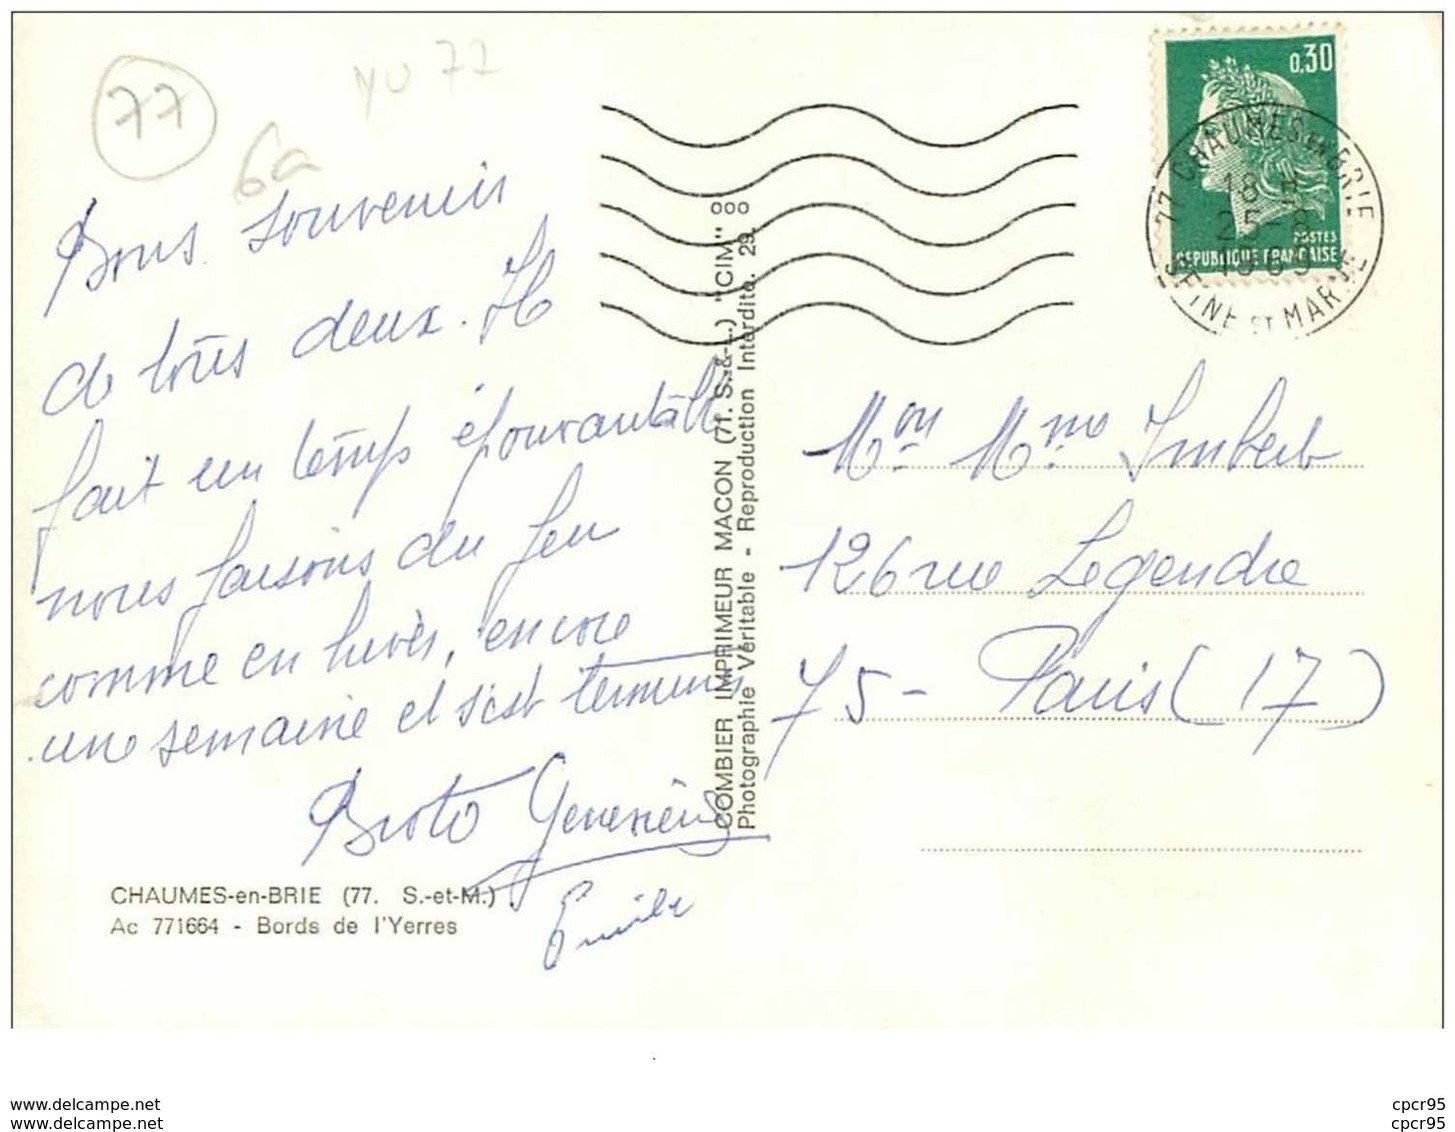 77
YU 77
6a
Bons souvenirs
de tous deux. Il
fait un temps épouvantable
nous faisons du feu
comme en hiver, encore
une semaine et s'est terminé
Broto Geneviève
Emile
CHAUMES-en-BRIE (77. S.-et-M.)
Ac 771664 - Bords de l'Yerres
COMBIER IMPRIMEUR MACON (71. S.-&-L.) "CIM" ooo
Photographie Véritable - Reproduction Interdite. 29.
0,30
POSTES
REPUBLIQUE FRANÇAISE
77 CHAUMES EN BRIE
18 H
25-8
1969
SEINE ET MARNE
Mon Mme Imbert
126 rue Legendre
75 - Paris (17)
www.delcampe.net
www.delcampe.net
cpcr95
cpcr95